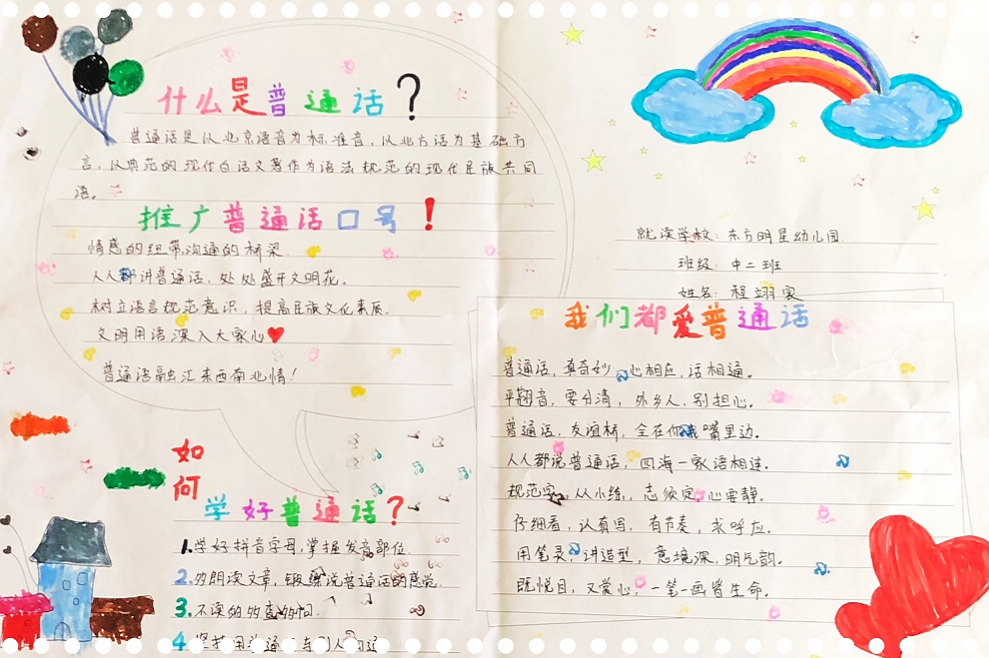 什么是普通话？
普通话是以北京语音为标准音，以北方话为基础方
言，以典范的现代白话文著作为语法规范的现代民族共同
语。
推广普通话口号！
情感的纽带，沟通的桥梁
人人都讲普通话，处处盛开文明花。
树立语言规范意识，提高民族文化素质。
文明用语深入大家心
普通话融汇东西南北情！
如何
学好普通话？
1.学好拼音字母，掌握发音部位.
2.多朗读文章，锻炼说普通话的感觉.
3.不读的多查多问.
4 坚持用普通 与 人
就读学校：东方明星幼儿园.
班级：中二班
姓名：程翊家
我们都爱普通话
普通话，真奇妙 心相应，话相通。
平翘音，要分清，外乡人，别担心。
普通话，友谊桥，全在你我嘴里边。
人人都说普通话，四海一家语相连。
规范字，从小练，志须定，心要静。
仔细看，认真写，有节奏，求呼应。
用笔灵，讲造型，意境深，明气韵。
既悦目，又爱心，一笔一画皆生命。